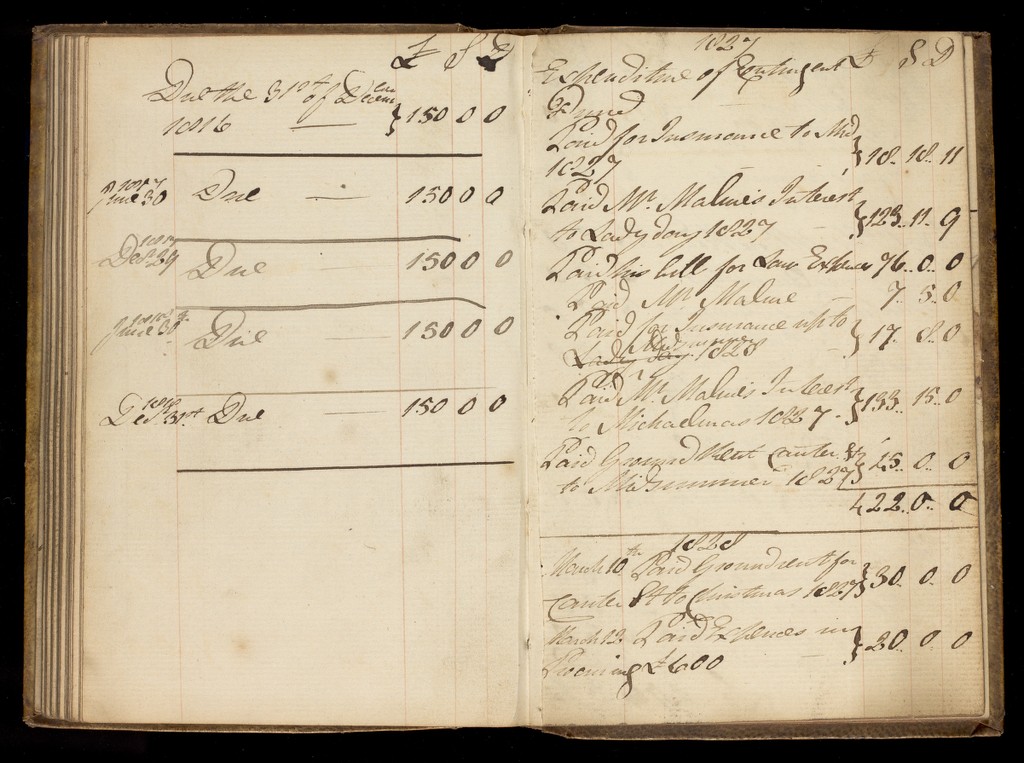 £ S D
Due the 31st of Decem
1816 — } 150 0 0
1817
June 30 Due — 150 0 0
1817
Decr 29 Due — 150 0 0
1818
June 30th Due — 150 0 0
1818
Decr 31st Due — 150 0 0
1827
Expenditure of Contingent £ S D
Fund
Paid for Insurance to Mid
1827 } 18.. 18.. 11
Paid Mr. Malme's Interest
to Lady day 1827 } 123.. 11.. 9
Paid his bill for Law Expences 76.. 0.. 0
Paid Mr Malme — 7.. 5.. 0
Paid for Insurance up to
Midsummer
Lady day 1828 } 17.. 8.. 0
Paid Mr. Malme's Interest
to Michaelmas 1827. } 133.. 15.. 0
Paid Ground Rent Canter St
to Midsummer 1827 } 25.. 0.. 0
422.. 0.. 0
1828
March 10th Paid Ground rent for
Canter St to Christmas 1827 } 30.. 0.. 0
March 12. Paid Expences in
£600 } 30.. 0.. 0